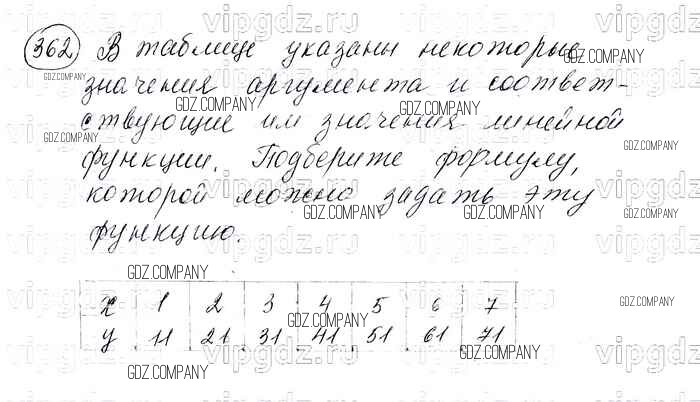 362 В таблице указаны некоторые
значения аргумента и соответ-
ствующие им значения линейной
функции. Подберите формулу,
которой можно задать эту
функцию.
x 1 2 3 4 5 6 7
y 11 21 31 41 51 61 71